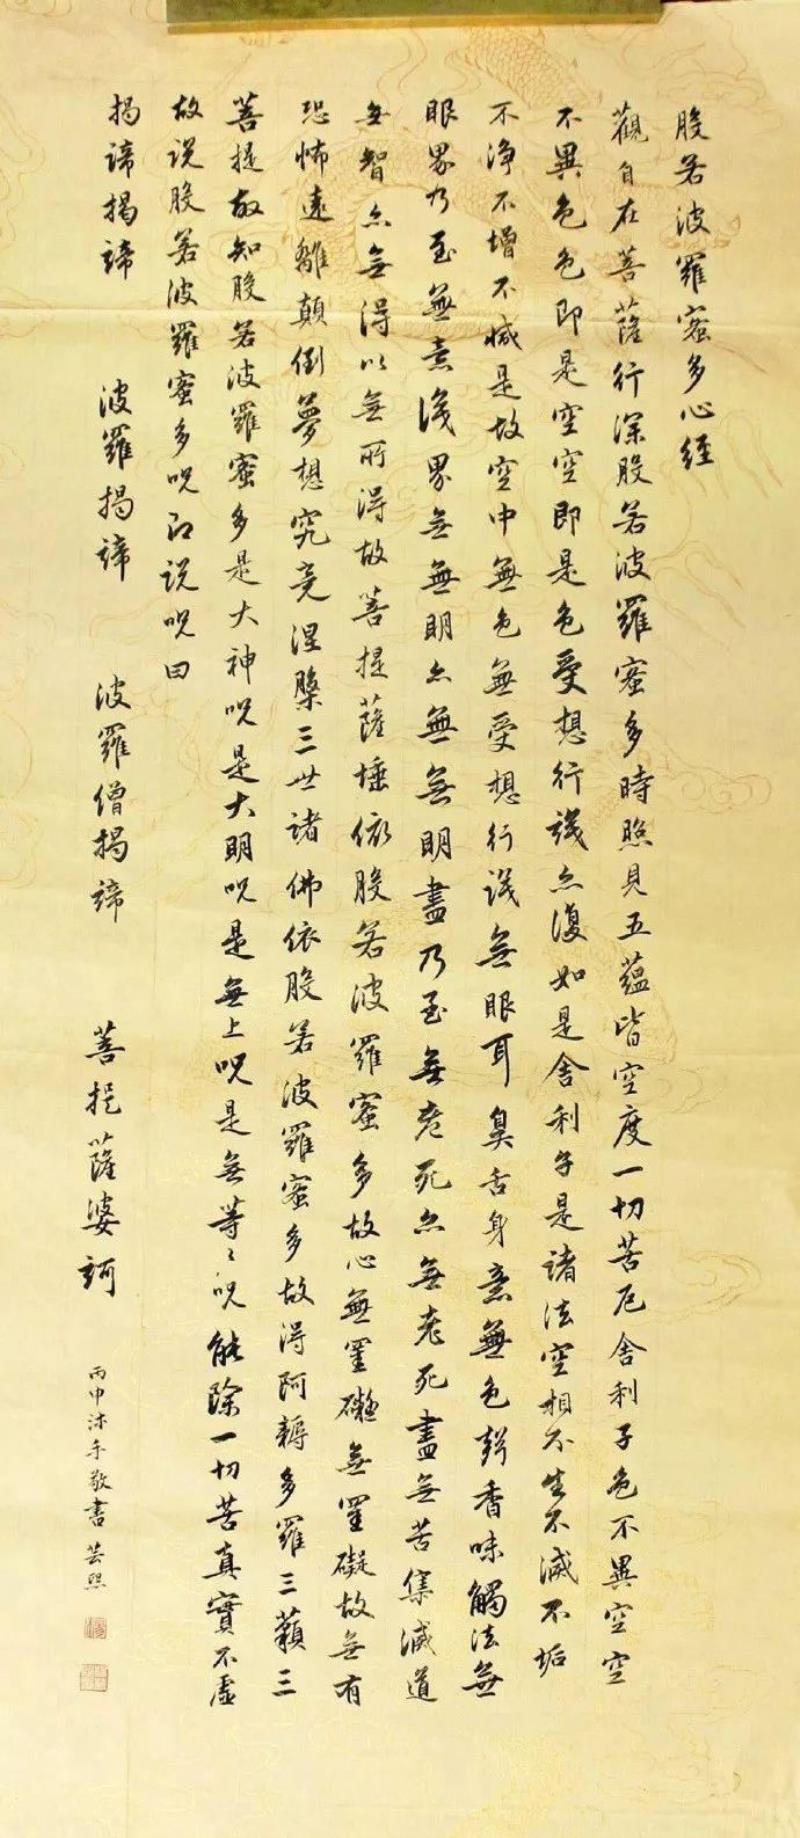 般若波羅蜜多心經
觀自在菩薩行深般若波羅蜜多時照見五蘊皆空度一切苦厄舍利子色不異空空
不異色色即是空空即是色受想行識亦復如是舍利子是諸法空相不生不滅不垢
不淨不增不減是故空中無色無受想行識無眼耳鼻舌身意無色聲香味觸法無
眼界乃至無意識界無無明亦無無明盡乃至無老死亦無老死盡無苦集滅道
無智亦無得以無所得故菩提薩埵依般若波羅蜜多故心無罣礙無罣礙故無有
恐怖遠離顛倒夢想究竟涅槃三世諸佛依般若波羅蜜多故得阿耨多羅三藐三
菩提故知般若波羅蜜多是大神呪是大明呪是無上呪是無等々呪能除一切苦真實不虛
故說般若波羅蜜多呪即說呪曰
揭諦揭諦 波羅揭諦 波羅僧揭諦 菩提薩婆訶
丙申沐手敬書芸熙